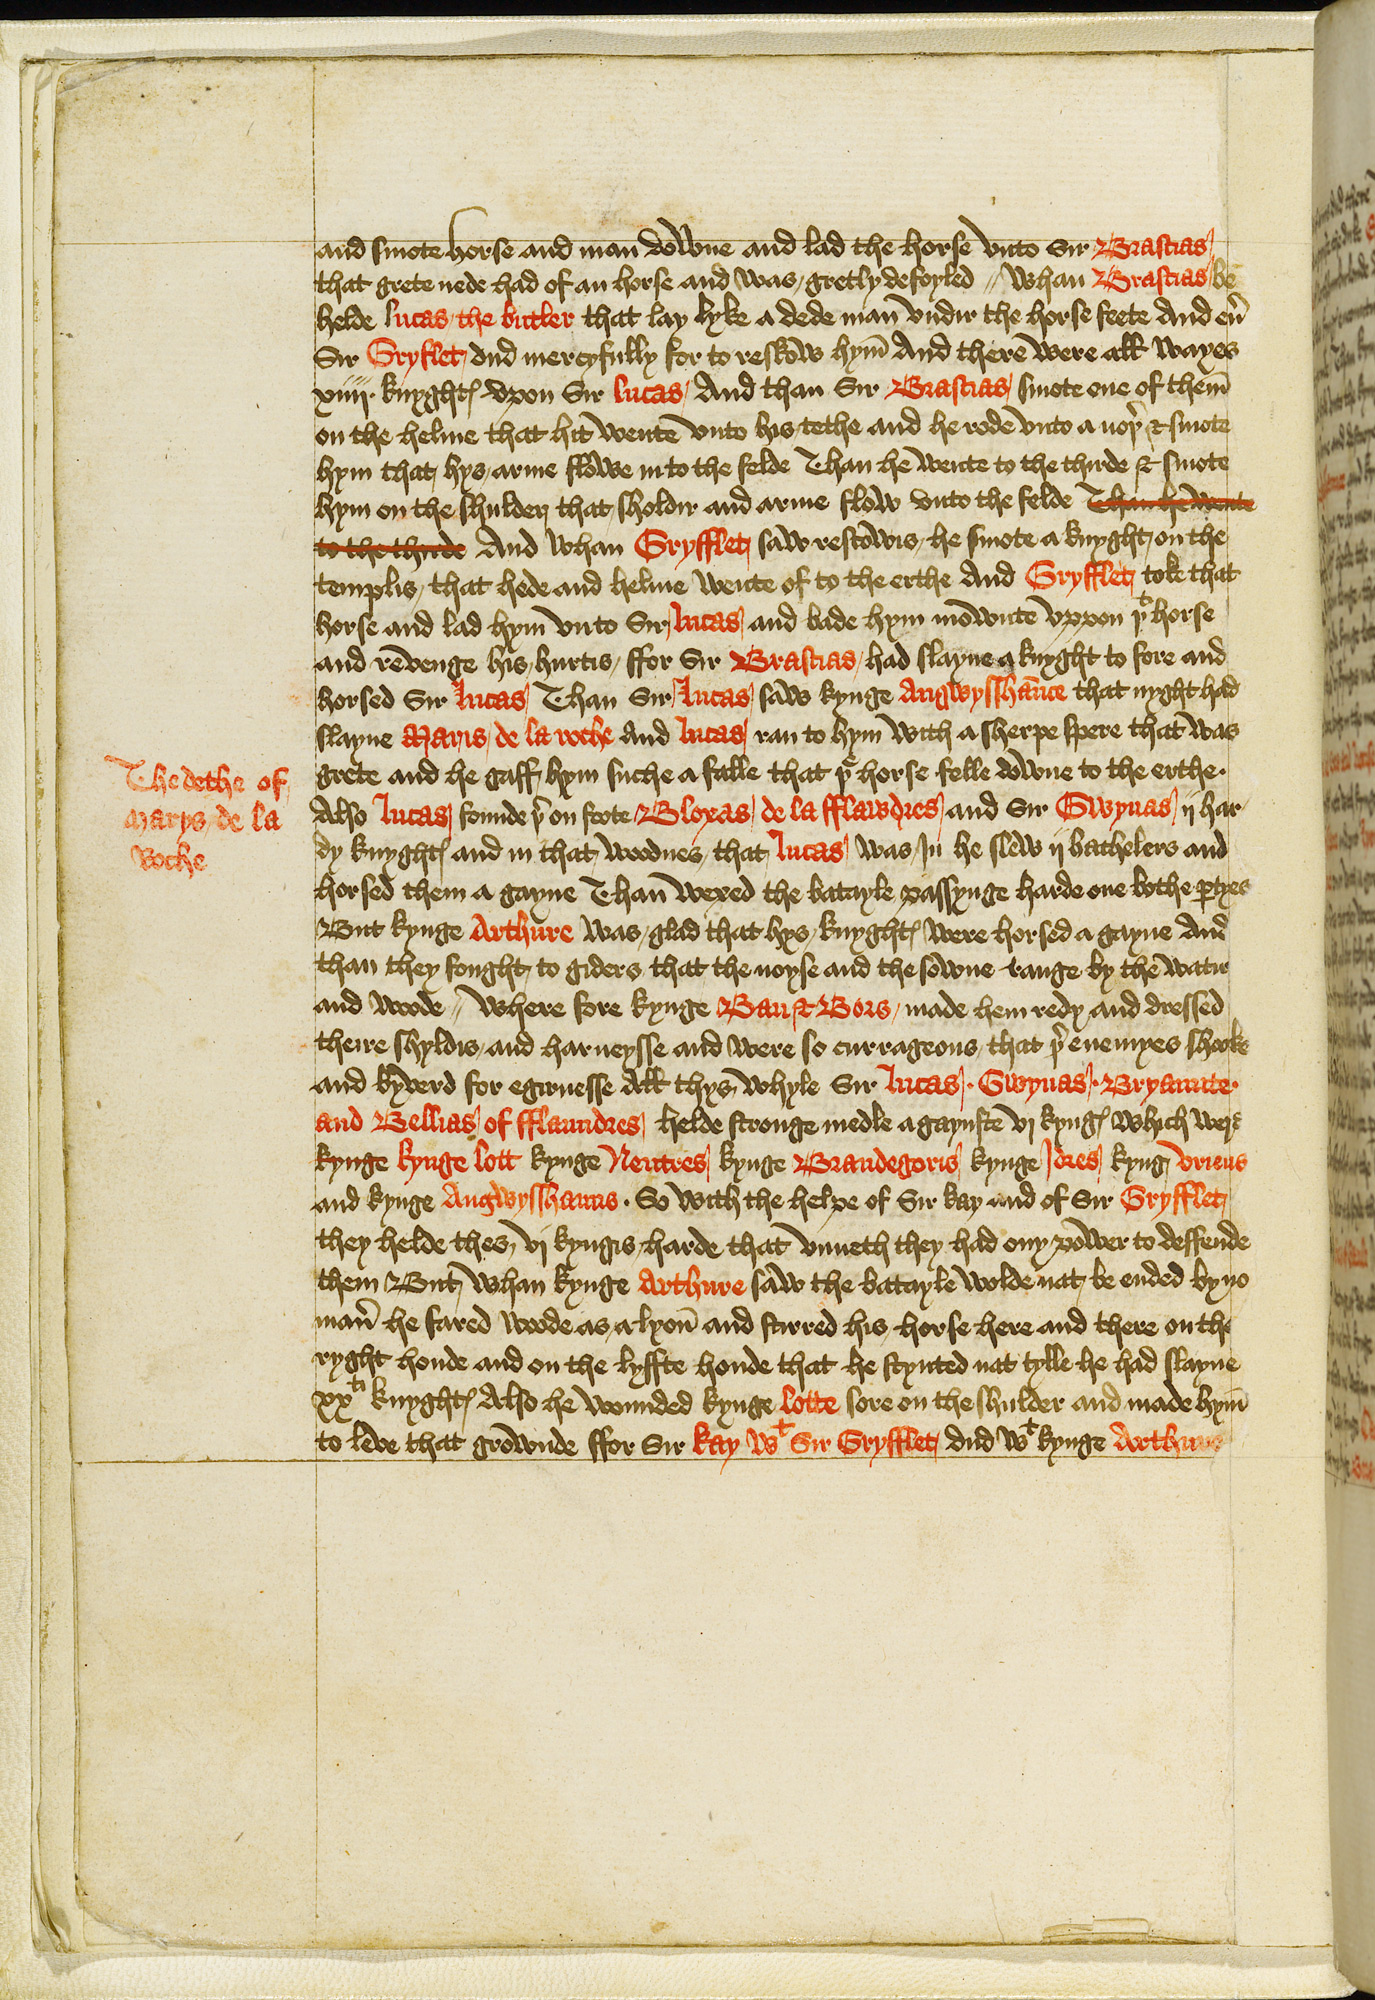 and smote horse and man downe and lad the horse vnto Sir Brastias
that grete nede had of an horse and was gretly defoyled // Whan Brastias be
helde lucas the butler that lay lyke a dede man vndir the horse feete And eũ
Sir Gryflet dud mercyfully for to reskow hym̄ And there were all wayes
xiiij knyghtꝭ vpon Sir lucas And than Sir Brastias smote one of them̄
on the helme that hit wente vnto his tethe and he rode vnto a noþ̉ & smote
hym that hys arme flowe in to the felde Than he wente to the thirde & smote
hym on the shulder that sholdir and arme flow vnto the felde Than he wente
to the thirde And whan Grifflet saw rescowis he smote a knyght on the
templis that hede and helme wente of to the erthe And Gryfflet toke that
horse and lad hym vnto Sir lucas and bade hym mownte vppon þͭ horse
and revenge his hurtis ffor Sir Brastias had slayne a knyght to fore and
horsed Sir lucas Than Sir lucas saw kynge Angwysshaunce that nyght had
slayne Maris de la roche And lucas ran to hym with a sherpe spere that was
grete and he gaff hym suche a falle that þͤ horse felle downe to the erthe
Also lucas founde þ̉ on foote Bloyas de la fflawdres and Sir Gwynas ij har
dy knyghtꝭ and in that woodnes that lucas was In he slew ij bachelers and
horsed them a gayne Than wexed the batayle passynge harde one bothe ꝑtyes
But kynge Arthure was glad that hys knyghtꝭ were horsed a gayne And
than they fought to giders that the noyse and the sowne range by the watir
and woode // Where fore kynge Ban & Bors made hem redy and dressed
theire shyldis and harneysse and were so currageous that þ̉ enemyes shooke
and byverd for egirnesse All thys whyle Sir lucas · Gwynas · Bryaunte ·
and Bellias of fflaundres helde stronge medle a gaynste vj kyngꝭ which were
kynge kynge lott kynge Nentres kynge Brandegoris kynge Idres kyng vriens
and kynge Angwysshauns · So with the helpe of Sir kay and of Sir Gryfflet
they helde thes vj kyngis harde that vnneth they had ony power to deffende
them But whan kynge Arthure saw the batayle wolde nat be ended by no
man̉ he fared woode as a lyon̄ and stirred his horse here and there on the
ryght honde and on the lyffte honde that he stynted nat tylle he had slayne
xxͭⁱ knyghtꝭ Also he wounded kynge lotte sore on the shulder and made hym̄
to leve that grownde ffor Sir kay wͭ Sir Gryfflet dud wͭ kynge Arthure
The dethe of
Marys de la
Roche